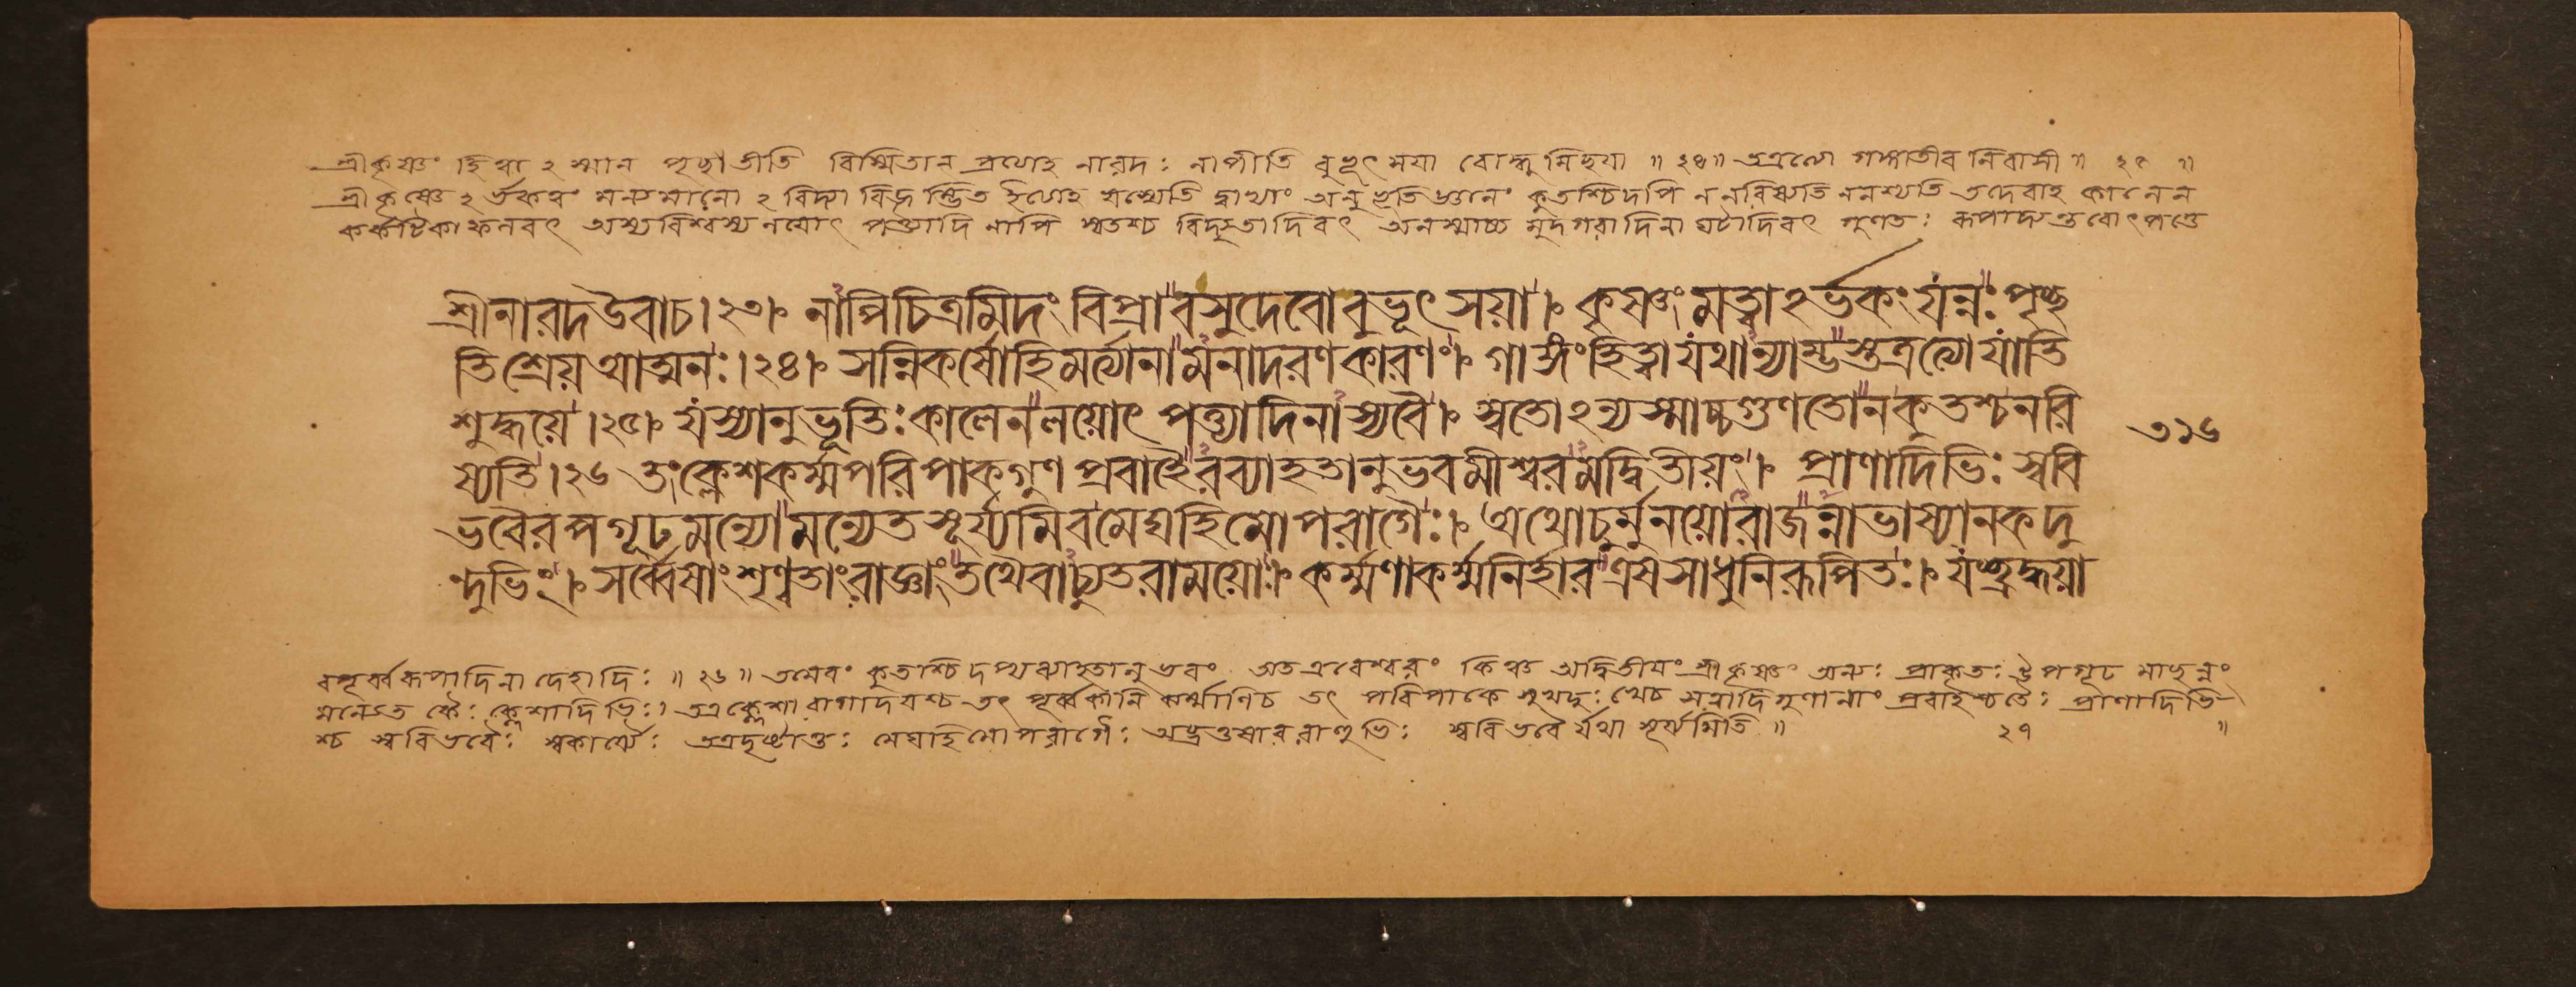 শ্রীকৃষ্ণং হিত্বা২স্মান পৃচ্ছতীতি বিস্মিতান প্রত্যাহ নারদঃ নাপীতি বুভুৎসয়া বোদ্ধুমিছয়া ॥ ২৪ ॥ তত্রত্যো গঙ্গাতীরনিবাসী ॥ ২৫ ॥
শ্রীকৃষ্ণে২র্ভকত্বং মন্যমানো২ বিদ্যা অনুভূতির্জ্ঞানং কুতশ্চিদপি ন নরিষ্যতি ননশ্যতি তদেবাহ কালেন
কর্কটিকাফলবৎ অস্যবিশ্বস্য লয়োৎপত্ত্যাদি নাপি স্বতশ্চ বিদ্যুতাদিবৎ অন্যস্মাচ্চ মুদগরাদিনা ঘটাদিবৎ গুণতঃ রূপাদ্যন্তরোৎপত্তে
শ্রীনারদউবাচ।২৩। নাপিচিত্রমিদং বিপ্রা বসুদেবোবুভূৎসয়া। কৃষ্ণংমত্বা২র্ভকংযন্নঃপৃচ্ছ
তিশ্রেয়আত্মনঃ।২৪। সন্নিকর্ষোহিমর্ত্যানামনাদরণকারণং। গাঙ্গংহিত্বাযথান্যাম্ভস্তত্রত্যোযাতি
শুদ্ধয়ে।২৫। যস্যানুভূতিঃকালেনলয়োৎপত্ত্যাদিনাস্যবৈ। স্বতো২ন্যস্মাচ্চগুণতোনকুতশ্চনরি
ষ্যতি।২৬ তংক্লেশকর্ম্মপরিপাকগুণপ্রবাহৈরব্যাহতানুভবমীশ্বরমদ্বিতীয়ং। প্রাণাদিভিঃস্ববি
ভবৈরপগূঢমন্যোমন্যেতসূর্য্যমিবমেঘহিমোপরাগৈঃ। অথোচুর্মুনয়োরাজন্নাভাষ্যানকদু
ন্দুভিং। সর্ব্বেষাংশৃণ্বতাংরাজ্ঞাংতথৈবাচ্যুতরাময়োঃ। কর্ম্মণাকর্ম্মনির্হারএষসাধুনিরূপিতঃ। যচ্ছ্রদ্ধয়া
৩১৬
পূর্ব্বরূপাদিনা দেহাদিঃ ॥ ২৬ ॥ তমেবং কুতশ্চিদপ্যব্যাহতানুভবং অতএবেশ্বরং কিঞ্চ অদ্বিতীয়ং শ্রীকৃষ্ণং অন্যঃ প্রাকৃতঃ উপগূঢ মাছন্নং
মন্যেত কৈঃ ক্লেশাদিভিঃ। তত্রক্লেশা রাগাদয়শ্চ তৎ পূর্ব্বকানি কর্ম্মাণিচ তৎ পরিপাকে সুখদুঃখেচ সত্বাদিগুণানাং প্রবাহশ্চতৈঃ প্রাণাদিভি
শ্চ স্ববিভবৈঃ স্বকার্য্যৈঃ তত্রদৃষ্টান্তঃ মেঘহিমোপরাগৈঃ স্ববিভবৈর্যথা সূর্য্যমিতি ॥ ২৭ ॥